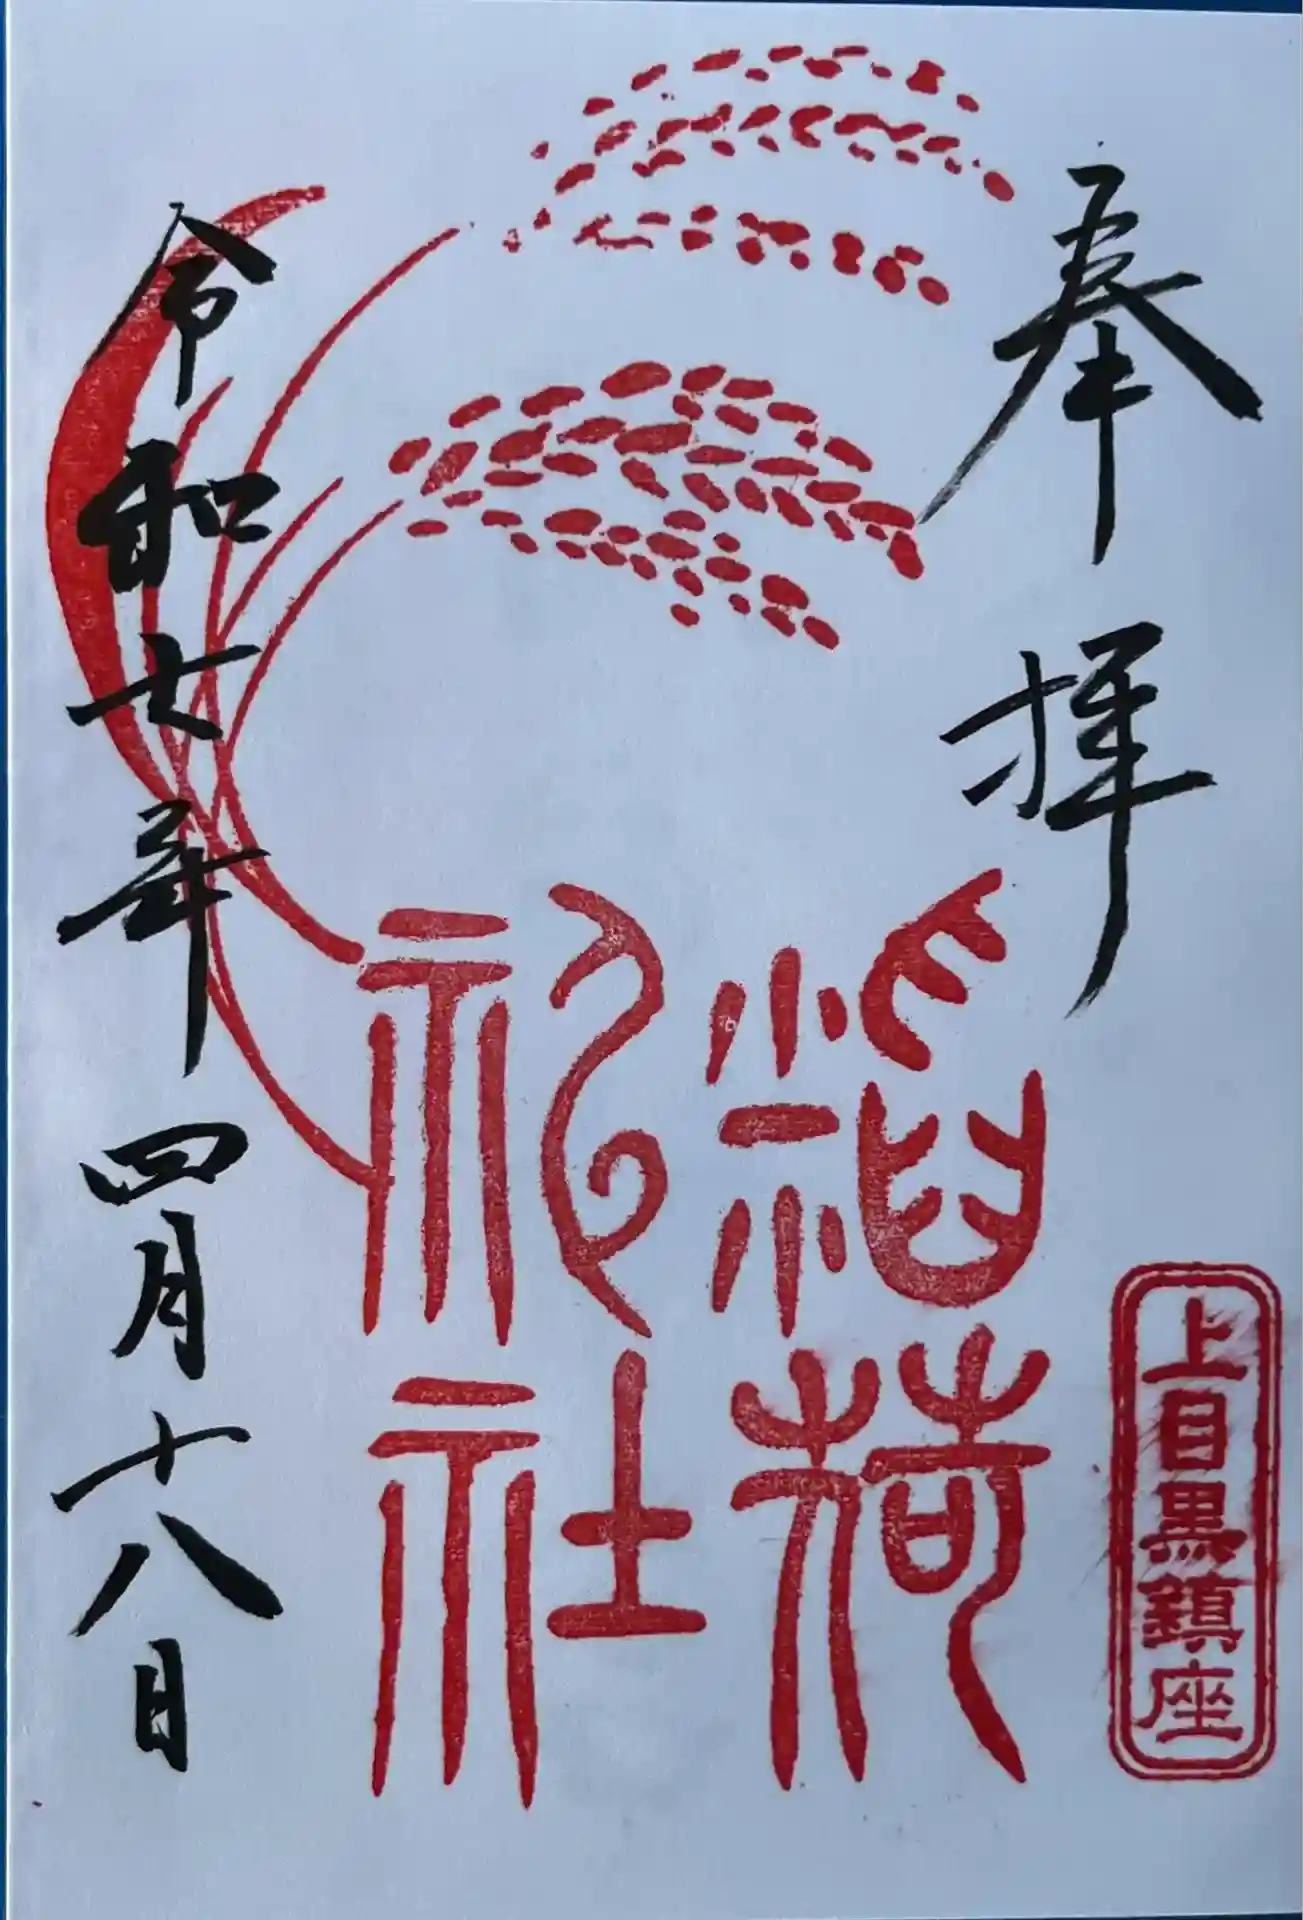 奉拝
上目黒鎮座
稲荷
神社
令和七年四月十八日